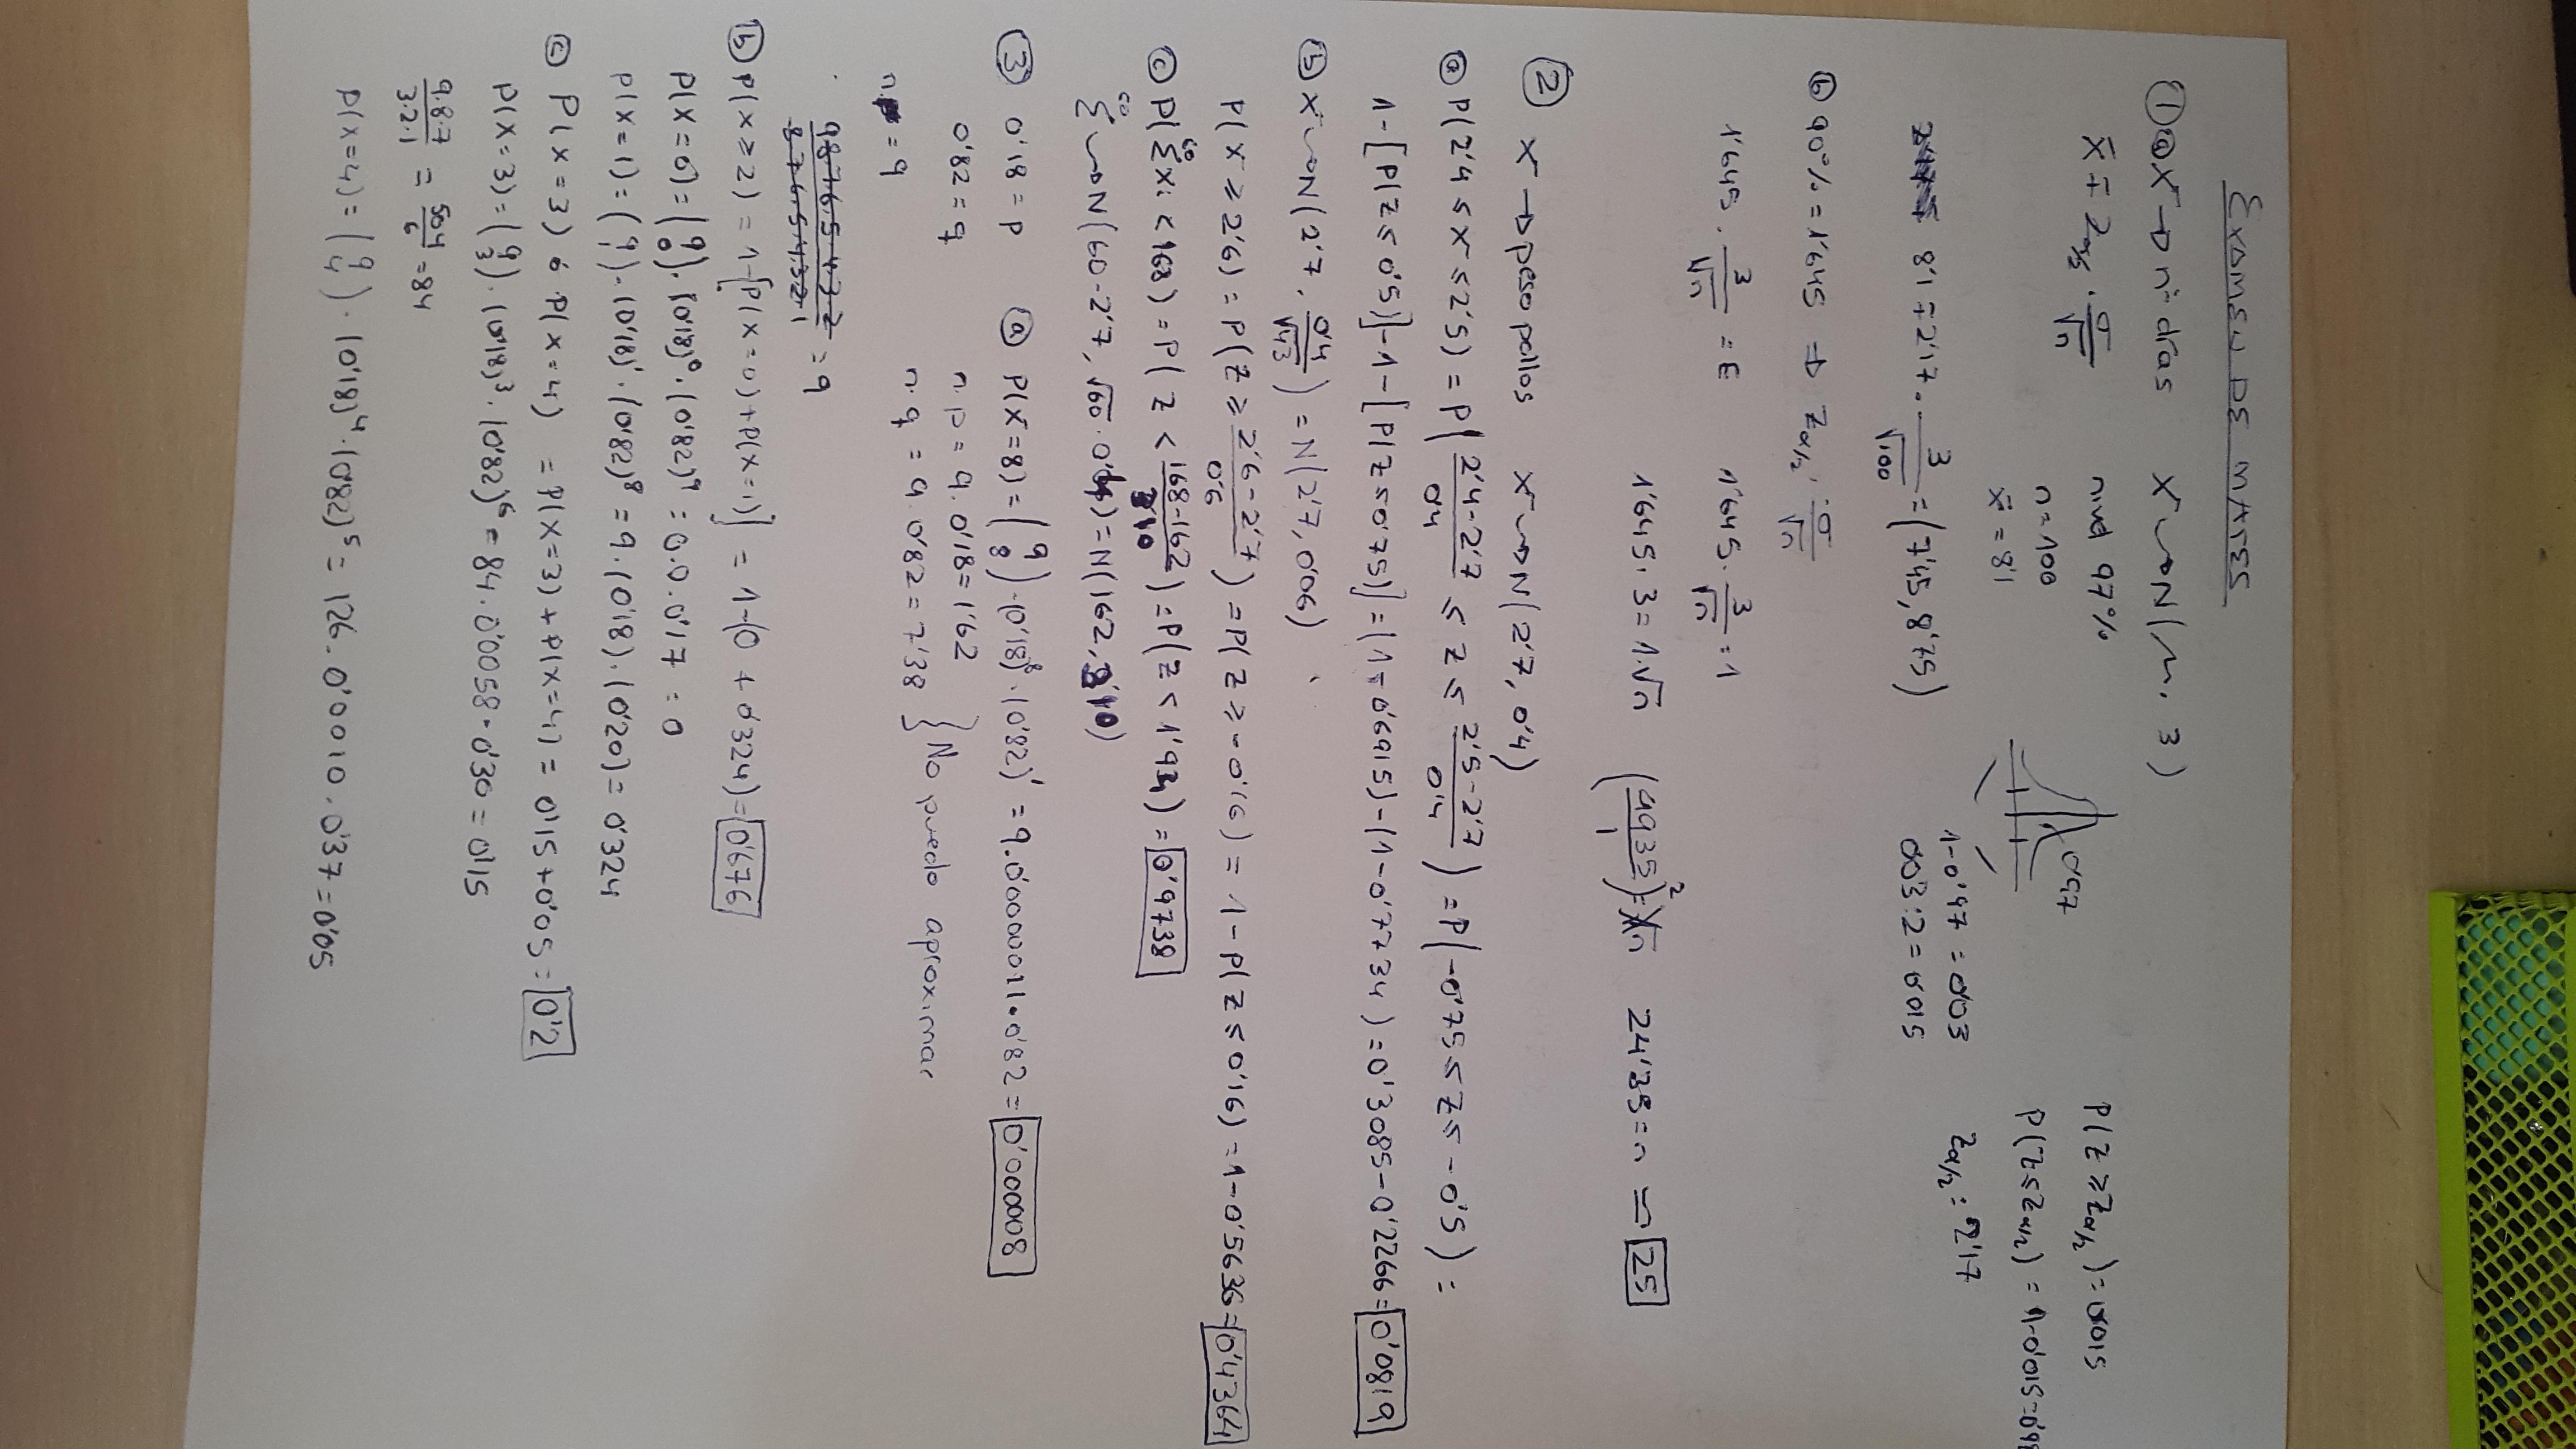 EXAMEN DE MATES
① ⓐ X → nº días X ~> N(μ, 3)
x̄ ∓ Zα/2 · σ/√n
nivel 97%
n=100
x̄ = 8'1
0'97
1-0'97 = 0'03
0'03:2 = 0'015
P(Z ≥ Zα/2) = 0'015
P(Z ≤ Zα/2) = 1-0'015=0'98
Zα/2 = 2'17
8'1 ∓ 2'17 · 3/√100 = (7'45, 8'75)
ⓑ 90% = 1'645 ⇒ Zα/2 · σ/√n
1'645 · 3/√n = E 1'645 · 3/√n = 1
1'645 · 3 = 1·√n (4'935/1)² = n 24'35 = n ≃ 25
② X → peso pollos X ~> N(2'7, 0'4)
ⓐ P(2'4 ≤ X ≤ 2'5) = P(2'4-2'7/0'4 ≤ Z ≤ 2'5-2'7/0'4) = P(-0'75 ≤ Z ≤ -0'5) =
1-[P(Z ≤ 0'5)]-1-[P(Z ≤ 0'75)] = (1-0'6915)-(1-0'7734) = 0'3085-0'2266 = 0'0819
ⓑ X ~> N(2'7, 0'4/√43) = N(2'7, 0'06)
P(X ≥ 2'6) = P(Z ≥ 2'6-2'7/0'6) = P(Z ≥ -0'16) = 1-P(Z ≤ 0'16) = 1-0'5636 = 0'4364
ⓒ P(⁶⁰Σxi < 168) = P(Z < 168-162/3'10) = P(Z < 1'94) = 0'9738
⁶⁰Σ ~> N(60·2'7, √60·0'4) = N(162, 3'10)
③ 0'18 = p ⓐ P(X=8) = (9 8)·(0'18)⁸·(0'82)¹ = 9·0'0000011·0'82 = 0'000008
0'82 = q n·p = 9·0'18 = 1'62
n = 9 n·q = 9·0'82 = 7'38 } No puedo aproximar
9·8·7·6·5·4·3·2/8·7·6·5·4·3·2·1 = 9
ⓑ P(X ≥ 2) = 1-[P(X=0)+P(X=1)] = 1-(0 + 0'324) = 0'676
P(X=0) = (9 0)·(0'18)⁰·(0'82)⁹ = 0·0·0'17 = 0
P(X=1) = (9 1)·(0'18)¹·(0'82)⁸ = 9·(0'18)·(0'20) = 0'324
ⓒ P(X=3) ó P(X=4) = P(X=3)+P(X=4) = 0'15+0'05 = 0'2
P(X=3) = (9 3)·(0'18)³·(0'82)⁶ = 84·0'0058·0'30 = 0'15
9·8·7/3·2·1 = 504/6 = 84
P(X=4) = (9 4)·(0'18)⁴·(0'82)⁵ = 126·0'0010·0'37 = 0'05